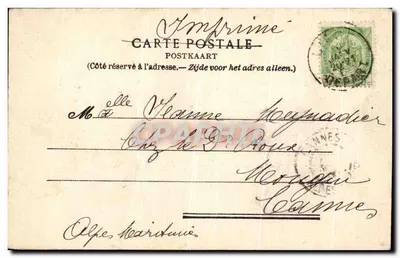 Imprimé
CARTE POSTALE
POSTKAART
(Côté réservé à l'adresse. — Zijde voor het adres alleen.)
Melle Jeanne Meynadier
Chez le Dr Roux
Mougin
Cannes
Alpes Maritimes